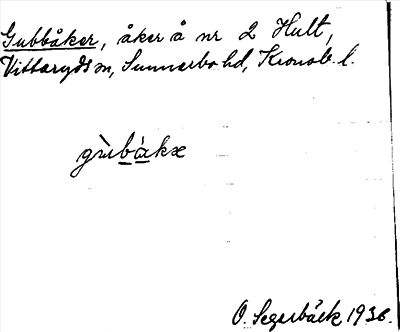 Gubbåker, åker å nr 2 Hult,
Vittaryds sn, Sunnerbo hd, Kronob. l.
gùbákæ
O. Segerbäck 1936.